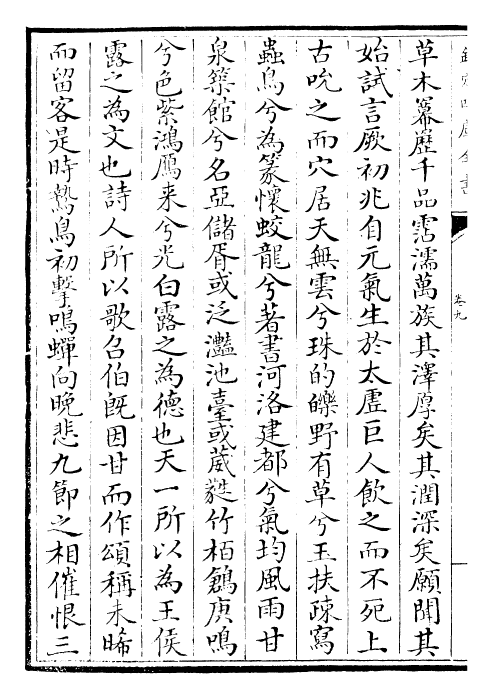 欽定四庫全書
卷九
草木羃歷千品霑濡萬族其澤厚矣其潤深矣願聞其
始試言厥初兆自元氣生於太虛巨人飲之而不死上
古吮之而穴居天無雲兮珠的皪野有草兮玉扶疎寫
蟲鳥兮為篆懷蛟龍兮著書河洛建都兮氣均風雨甘
泉築館兮名亞儲胥或泛灩池臺或葳蕤竹栢鶬庚鳴
兮色紫鴻鴈来兮光白露之為德也天一所以為王侯
露之為文也詩人所以歌召伯既因甘而作頌稱未晞
而留客是時鷙鳥初擊鳴蟬向晚悲九節之相催恨三